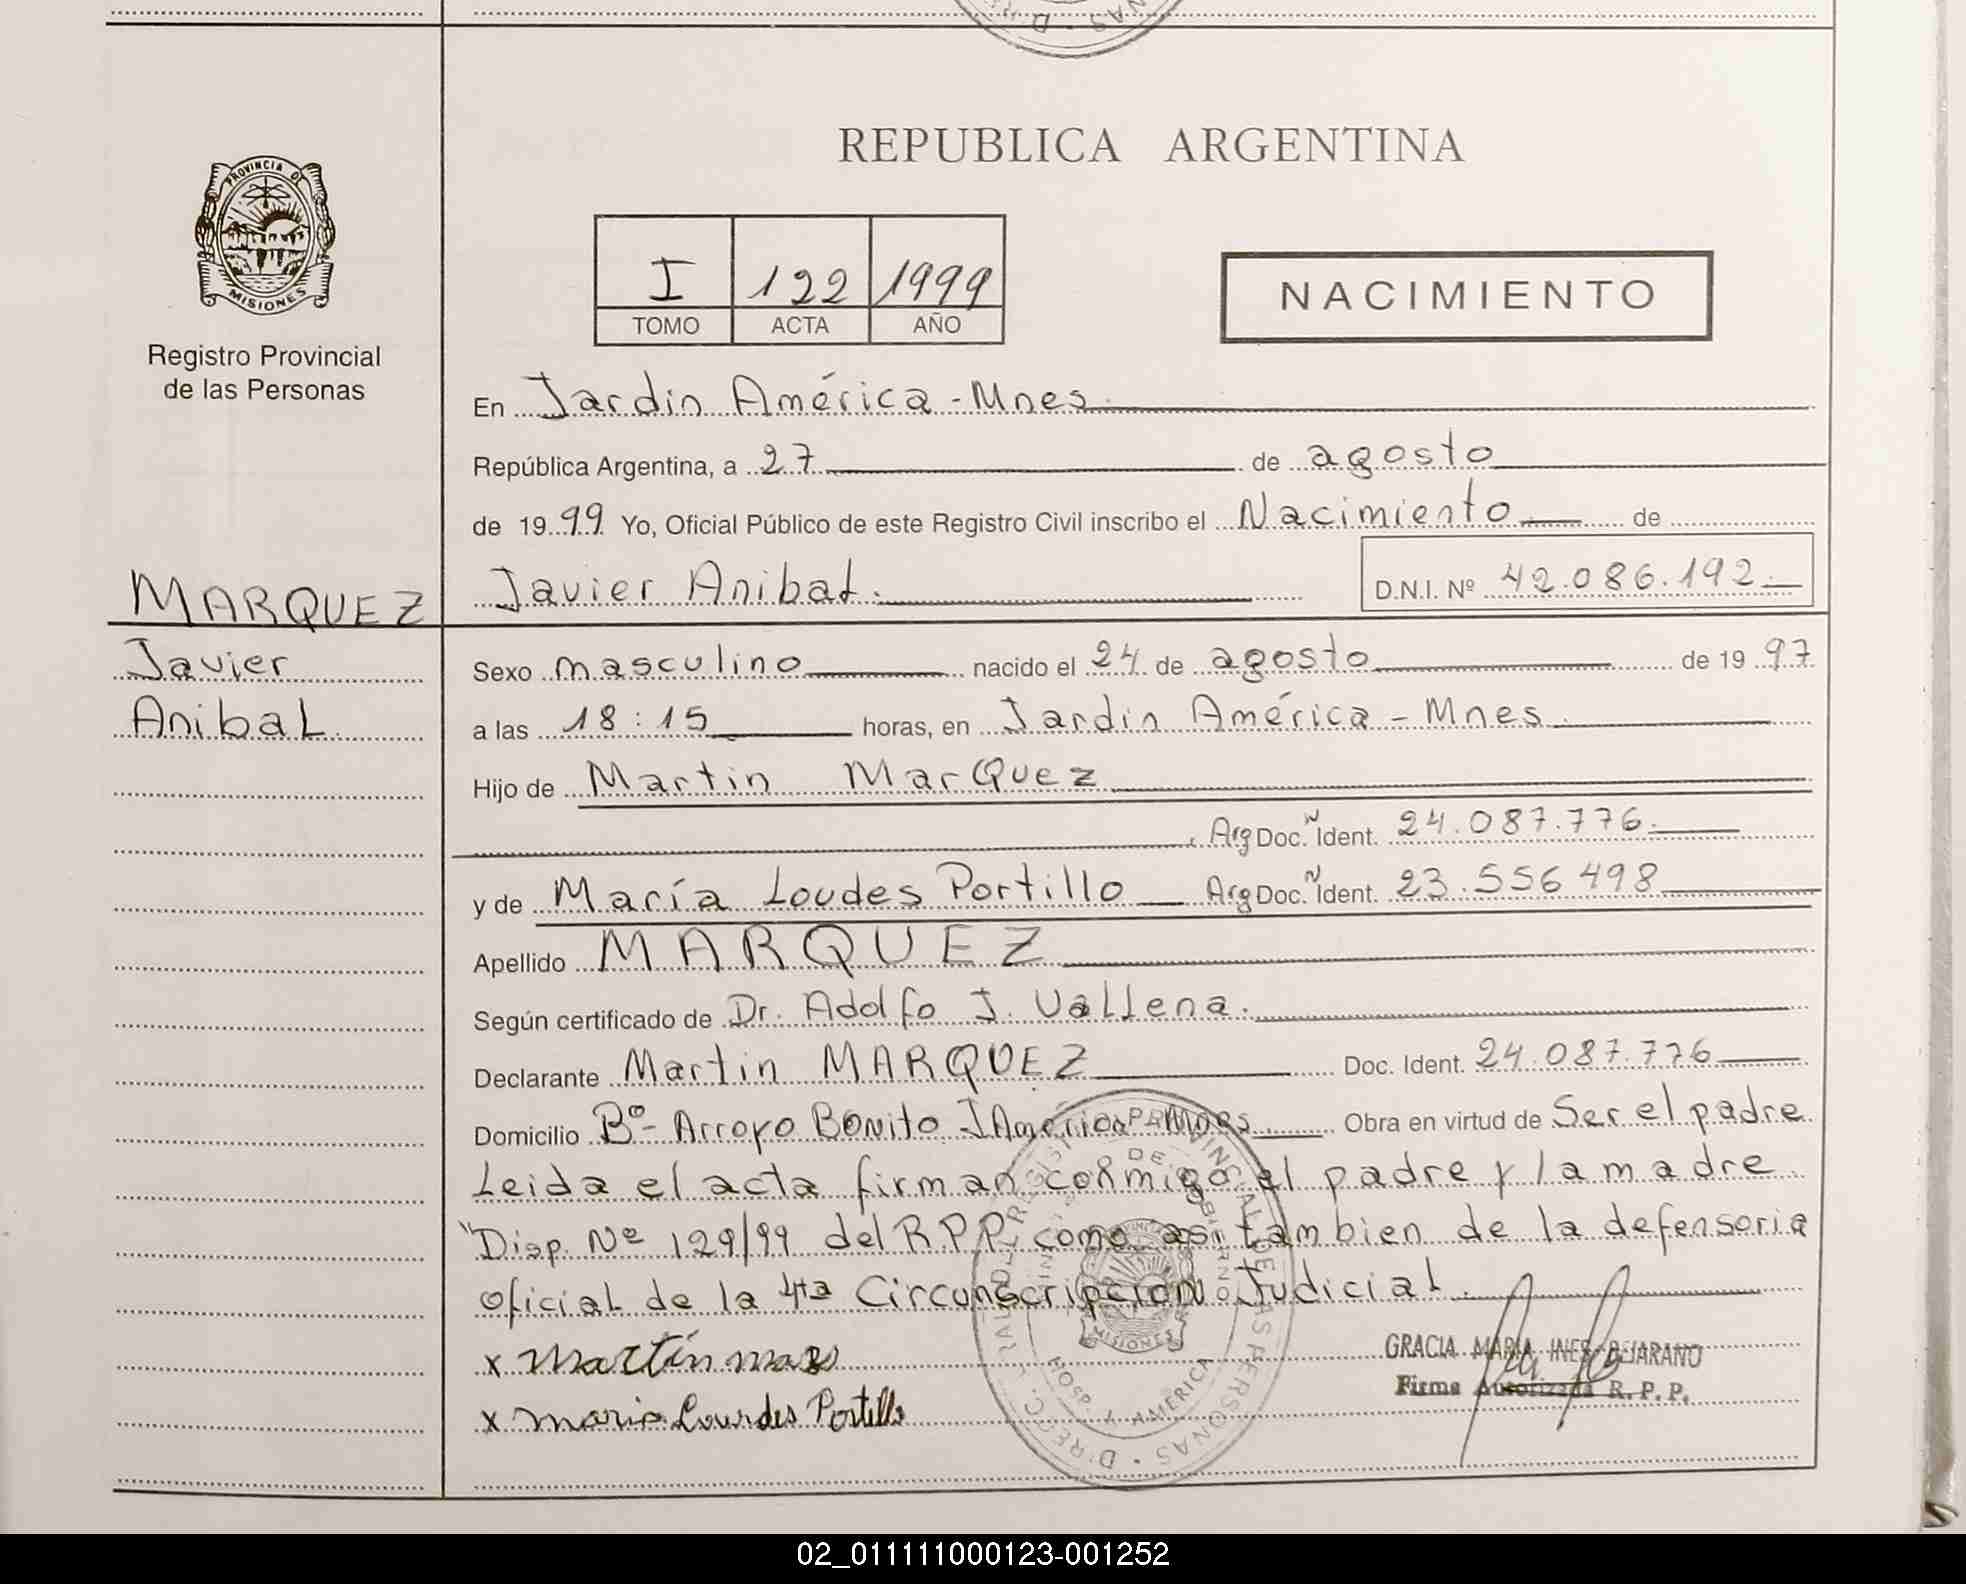 PROVINCIA DE
MISIONES
Registro Provincial
de las Personas
MARQUEZ
Javier
Anibal
REPUBLICA ARGENTINA
I 122 1999
TOMO ACTA AÑO
NACIMIENTO
En Jardin América - Mnes
República Argentina, a 27 de agosto
de 1999 Yo, Oficial Público de este Registro Civil inscribo el Nacimiento de
Javier Anibal. D.N.I. Nº 42.086.192.
Sexo masculino nacido el 24 de agosto de 1997
a las 18:15 horas, en Jardin América - Mnes
Hijo de Martin Marquez
Arg Doc. N Ident. 24.087.776.
y de María Loudes Portillo Arg Doc. N Ident. 23.556498
Apellido MARQUEZ
Según certificado de Dr. Adolfo J. Vallena.
Declarante Martin MARQUEZ Doc. Ident. 24.087.776
Domicilio Bº- Arroyo Bonito J América - Mnes Obra en virtud de Ser el padre
Leida el acta firman conmigo el padre y la madre
"Disp. Nº 129/99 del R.P.P. como asi tambien de la defensoria
oficial de la 4ta Circunscripcion Judicial.
x Martín
x Maria Lourdes Portillo
GRACIA MARIA INES BEJARANO
Firma Autorizada R.P.P.
MISIONES
02_011111000123-001252